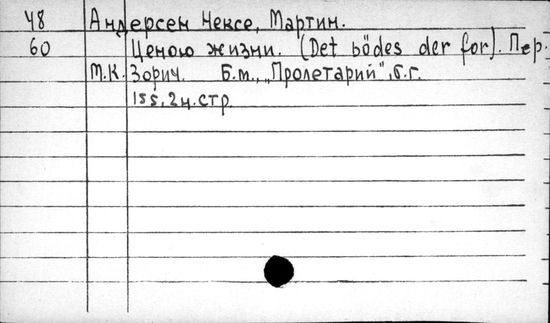 48 Андерсен Нексе, Мартин.
60 Ценою жизни. (Det bödes der for). Пер.
М.К. Зорич. Б.м., „Пролетарий", б.г.
155, 2 н. стр.